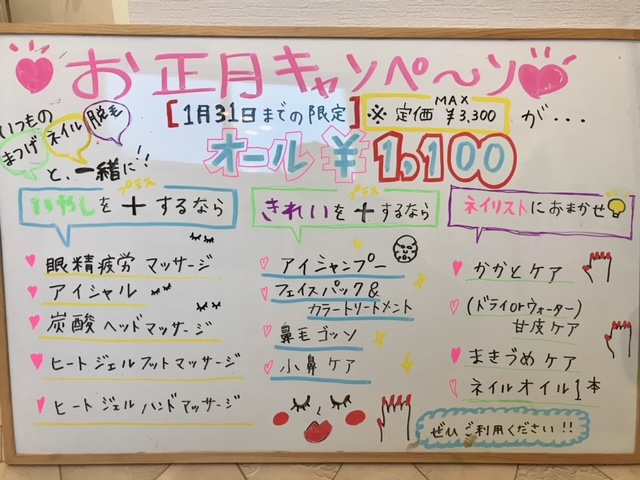 お正月キャンペ〜ン
[1月31日までの限定]
※定価 MAX ¥3,300 が...
いつもの
まつげ ネイル 脱毛
と、一緒に!!
オール ¥1,100
いやしを+プラスするなら
眼精疲労マッサージ
アイシャル
炭酸ヘッドマッサージ
ヒートジェルフットマッサージ
ヒートジェルハンドマッサージ
きれいを+プラスするなら
アイシャンプー
フェイスパック&
カラートリートメント
鼻毛ゴッソ
小鼻ケア
ネイリストにおまかせ
かかとケア
(ドライorウォーター)
甘皮ケア
まきづめケア
ネイルオイル1本
ぜひご利用ください!!